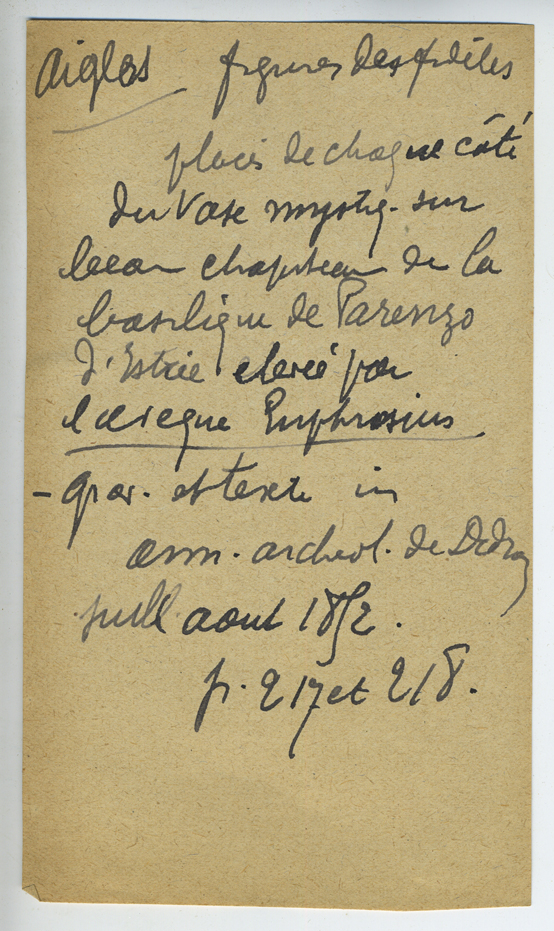 Aigles figures des fidèles
placés de chaque côté
du Vase mystiq. sur
beau chapiteau de la
basilique de Parenzo
d'Istrie élevée par
l'évêque Euphrasius
- grav. et texte in
ann. archéol. de Didron
juill aout 1852.
p. 217 et 218.